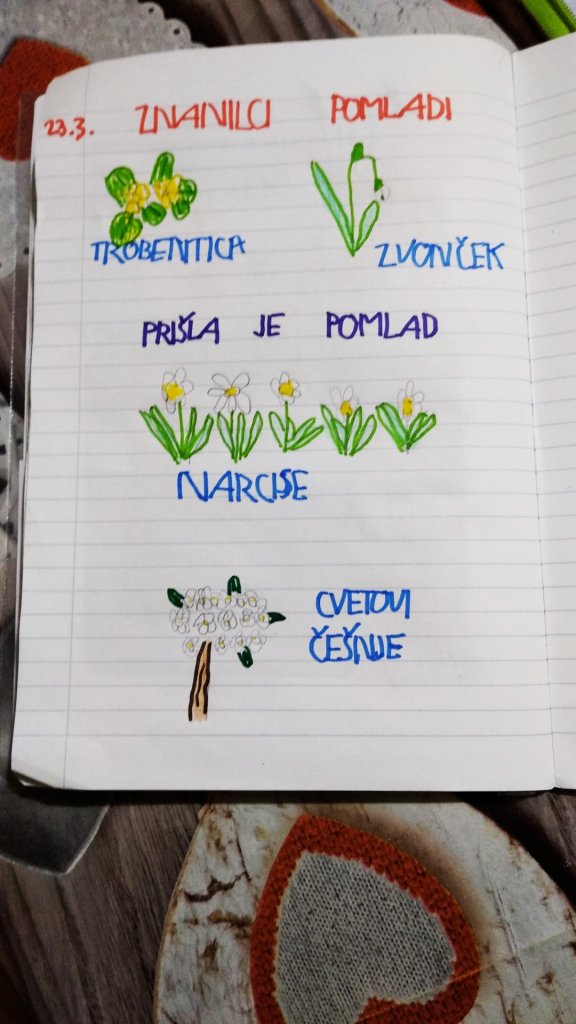 23.3. ZNANILCI POMLADI
TROBENTICA
ZVONČEK
PRIŠLA JE POMLAD
NARCISE
CVETOVI
ČEŠNJE